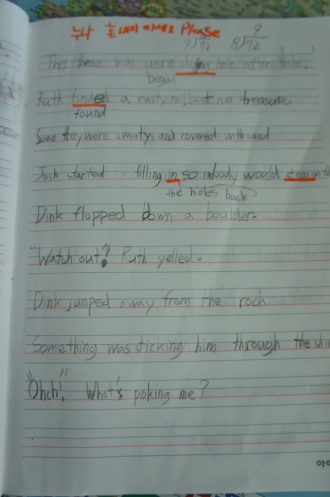 누나 혼내지 마세요 Please
9
9)72 8)72
The three kids were diging hole after hole.
began
Ruth finded a rusty but no treasure.
found
Soon they were sweaty and covered with sand
Josh started filling in so nobody would
the holes back
Dink flopped down a boulder.
"Watch out"! Ruth yelled.
Dink jumped away from the rock
Something was sticking him through the
"Ohch!" What's poking me?